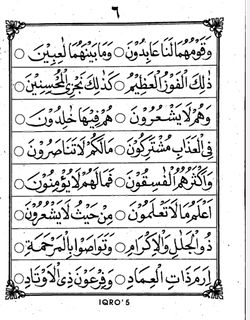 ٦
وَقَوْمُهُمَا لَنَا عَابِدُوْنَ ○ وَمَا بَيْنَهُمَا لَاعِبِيْنَ
ذٰلِكَ الْفَوْزُ الْعَظِيْمُ ○ كَذٰلِكَ نَجْزِى الْمُحْسِنِيْنَ
وَهُمْ لَا يَشْعُرُوْنَ ○ هُمْ فِيْهَا خٰلِدُوْنَ
فِى الْعَذَابِ مُشْتَرِكُوْنَ ○ مَالَكُمْ لَا تَنَاصَرُوْنَ
وَاَكْثَرُهُمُ الْفٰسِقُوْنَ ○ فَمَا لَهُمْ لَا يُؤْمِنُوْنَ
اَعْلَمُ مَا لَا تَعْلَمُوْنَ ○ مِنْ حَيْثُ لَا يَشْعُرُوْنَ
ذُو الْجَلٰلِ وَالْاِكْرَامِ ○ وَتَوَاصَوْا بِالْمَرْحَمَةِ
اِرَمَ ذَاتِ الْعِمَادِ ○ وَفِرْعَوْنَ ذِى الْاَوْتَادِ
IQRO'5